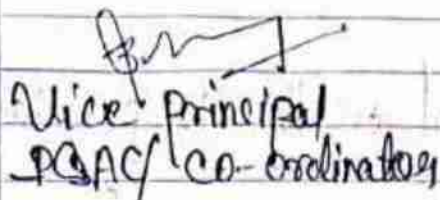 Vice principal
IQAC/ co-ordinator